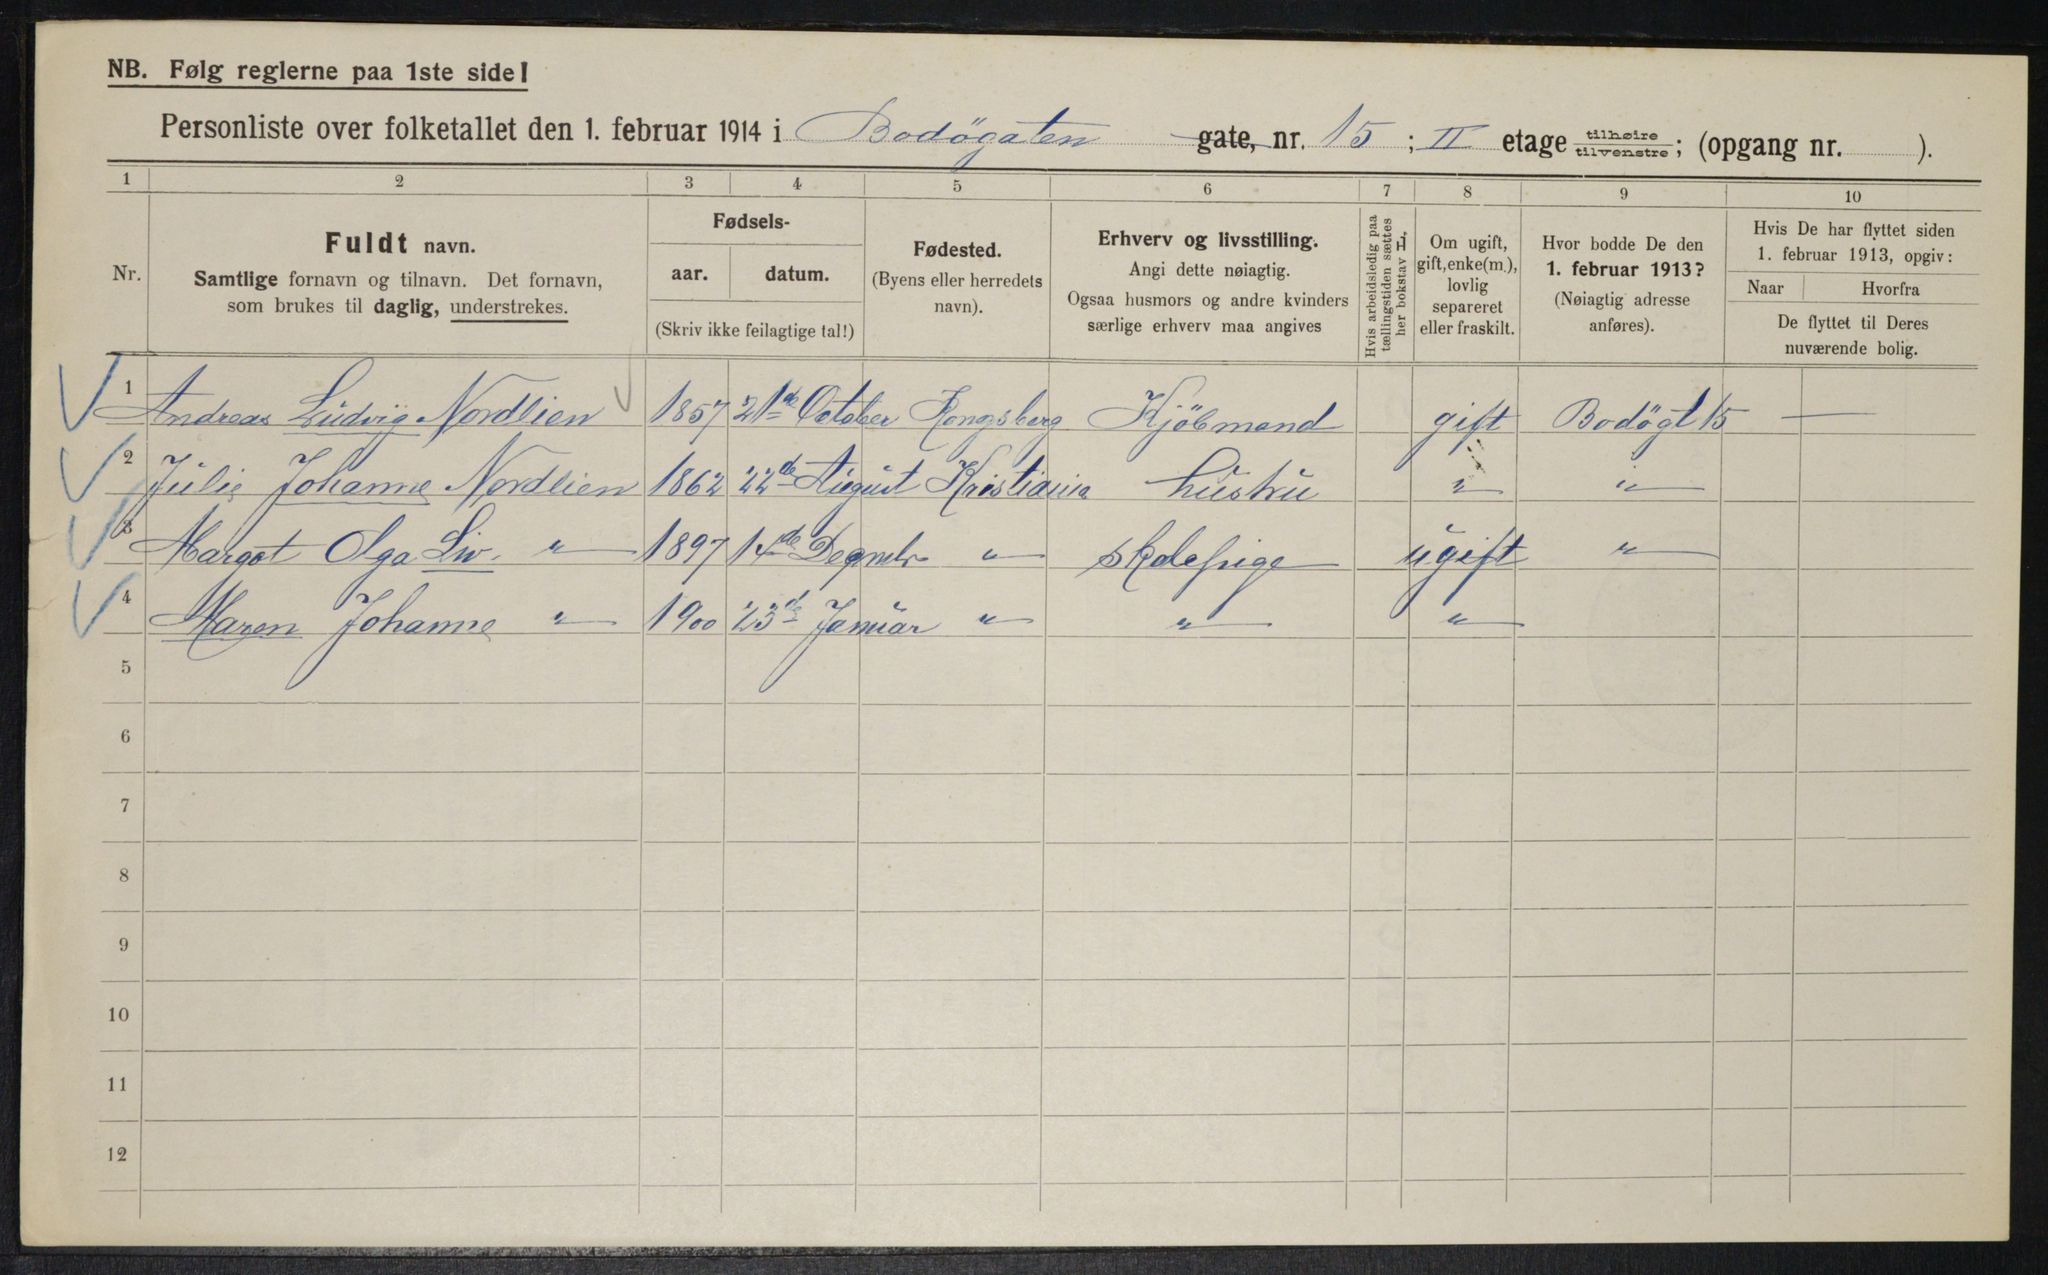 NB. Følg reglerne paa 1ste side!
Personliste over folketallet den 1. februar 1914 i Bodøgaten gate, nr. 15 ; II etage tilhøire tilvenstre ; (opgang nr. ).
1 2 3 4 5 6 7 8 9 10
Nr.
Fuldt navn.
Samtlige fornavn og tilnavn. Det fornavn,
som brukes til daglig, understrekes.
Fødsels-
aar. datum.
(Skriv ikke feilagtige tal!)
Fødested.
(Byens eller herredets
navn).
Erhverv og livsstilling.
Angi dette nøiagtig.
Ogsaa husmors og andre kvinders
særlige erhverv maa angives
Hvis arbeidsledig paa
tællingstiden sættes
her bokstav L.
Om ugift,
gift, enke(m.),
lovlig
separeret
eller fraskilt.
Hvor bodde De den
1. februar 1913?
(Nøiagtig adresse
anføres).
Hvis De har flyttet siden
1. februar 1913, opgiv:
Naar Hvorfra
De flyttet til Deres
nuværende bolig.
1 Andreas Ludvig Nordlien 1857 21de October Kongsberg Kjøbmand gift Bodøgt 15 —
2 Julie Johanne Nordlien 1862 22de August Kristiania hustru " "
3 Margot Olga Liv. " 1897 14de " skolepige ugift "
4 Maren Johanne " 1900 23de Januar " " "
5
6
7
8
9
10
11
12